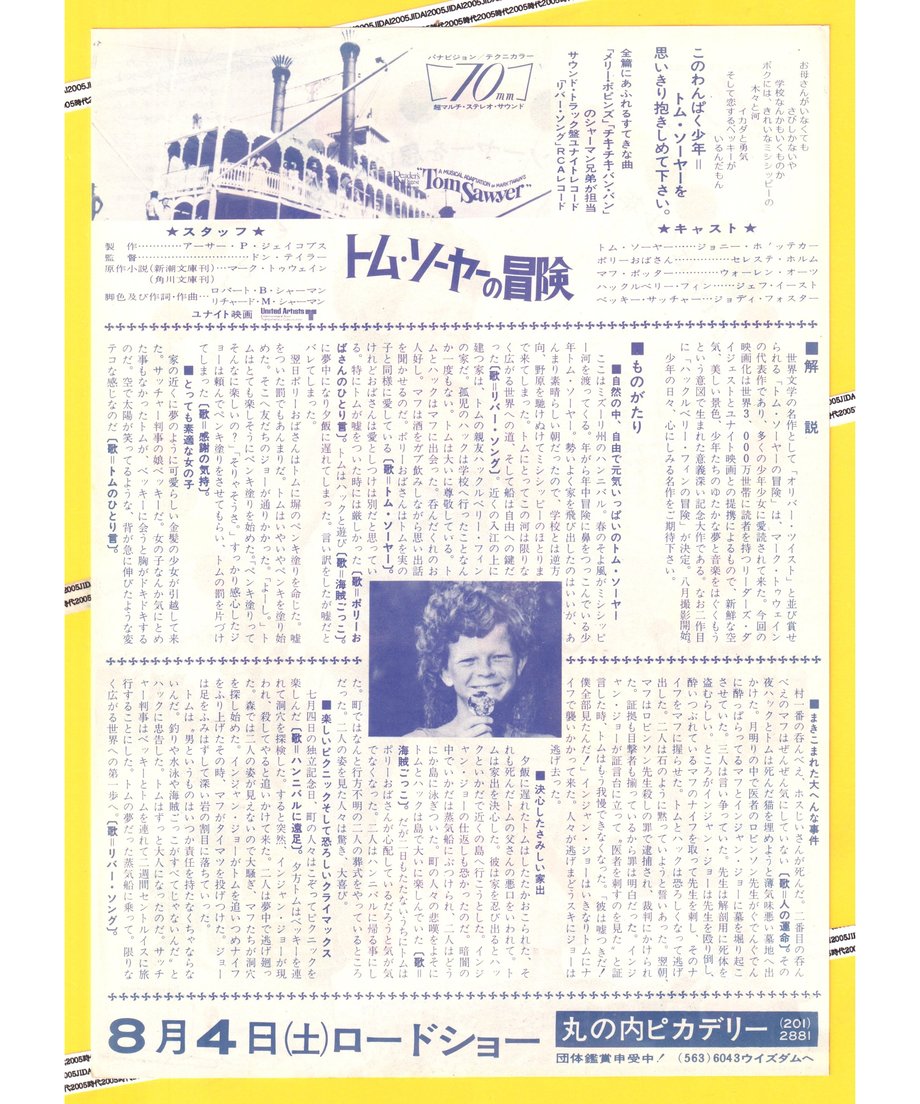 JIDAI2005時代2005JIDAI2005JIDAI2005時代2005
お母さんがいなくても
さびしかないや
学校なんかもいくものか
ボクには きれいなミシシッピーの
木々と河
イカダと勇気
そして恋するベッキーが
いるんだもん
このわんぱく少年＝
トム・ソーヤーを
思いきり抱きしめて下さい。
全篇にあふれるすてきな曲
「メリー・ポピンズ」「チキチキ・バン・バン」
のシャーマン兄弟が担当
サウンド・トラック盤ユナイトレコード
「リバー・ソング」RCAレコード
パナビジョン／テクニカラー
70mm
超マルチ・ステレオ・サウンド
Reader's Digest
A MUSICAL ADAPTATION OF MARK TWAIN'S
"Tom Sawyer"
★スタッフ★
製作…………アーサー・P・ジェイコブス
監督…………………ドン・テイラー
原作小説(新潮文庫刊)…マーク・トゥウェイン
(角川文庫刊)
脚色及び作詞・作曲…ロバート・B・シャーマン
リチャード・M・シャーマン
ユナイト映画 United Artists
トム・ソーヤーの冒険
★キャスト★
トム・ソーヤー………ジョニー・ホイッテカー
ポリーおばさん…………セレステ・ホルム
マフ・ポッター…………ウォーレン・オーツ
ハックルベリー・フィン……ジェフ・イースト
ベッキー・サッチャー……ジョディ・フォスター
■解説
世界文学の名作として「オリバー・ツイスト」と並び賞せ
られる「トム・ソーヤーの冒険」は、マーク・トゥウェイン
の代表作であり、多くの少年少女に愛読されて来た。今回の
映画化は世界３、０００万世帯に読者を持つリーダーズ・ダ
イジェストとユナイト映画との提携によるもので、新鮮な空
気、美しい景色、少年たちのゆたかな夢と音楽をはぐくもう
という意図で生まれた意義深い記念大作である。なお二作目
に「ハックルベリー・フィンの冒険」が決定。八月撮影開始。
少年の日々、心にしみる名作をご期待下さい。
■ものがたり
■自然の中、自由で元気いっぱいのトム・ソーヤー
ここはミズーリ州のハンニバル。春のそよ風がミシシッピ
ー河を渡ってくる。年がら年中冒険に鼻をつっこんでいる少
年トム・ソーヤー。勢いよく家を飛び出したのはいいが、あ
んまり素晴らしい朝だったので、学校とは逆方
向、野原を馳けぬけてミシシッピーのほとりま
で来てしまった。トムにとってこの河は限りな
く広がる世界への道、そして船は自由への鍵だ
った〔歌＝リバー・ソング〕。近くの入江の上に
建つ家は、トムの親友ハックルベリー・フィン
の家だ。孤児のハックは学校へ行ったことなん
か一度もない。トムは大いに尊敬している。ト
ムとハックはマフに出会った。呑んだくれのお
人好し。マフは酒をガブ飲みしながら思い出話
を聞かせるのだ。ポリーおばさんはトムを実の
子と同様に愛している〔歌＝トム・ソーヤー〕。
けれどおばさんは愛としつけは別だと思ってい
る。特にトムが嘘をついた時には厳しかった〔歌＝ポリーお
ばさんのひとり言〕。トムはハックと遊び〔歌＝海賊ごっこ〕。
に夢中になり夕飯に遅れてしまった。言い訳をしたが嘘だと
バレてしまった。
翌日ポリーおばさんはトムに塀のペンキ塗りを命じた。嘘
をついた罰でもあんまりだ。トムはいやいやペンキを塗り始
めた。そこへ友だちのジョーが通りかかった。『よーし。』ト
ムはとても楽しそうにペンキ塗りを始めた。『ペンキ塗りって
そんなに楽しいの？』『そりゃそうさ』すっかり感心したジ
ョーは頼んでペンキ塗りをさせてもらい、トムの罰を片づけ
てしまった〔歌＝感謝の気持〕。
■とっても素適な女の子
家の近くに夢のように可愛らしい金髪の少女が引越して来
た。サッチャー判事の娘ベッキーだ。女の子なんか気にとめ
た事もなかったトムが、ベッキーに会うと胸がドキドキする
のだ。空で太陽が笑ってるような、背が急に伸びたような変
テコな感じなのだ〔歌＝トムのひとり言〕。
■まきこまれた大へんな事件
村一番の呑んべえ、ホスじいさんが死んだ。二番目の呑ん
べえのマフはぜんぜん気にしてない〔歌＝人の運命〕。その
夜ハックとトムは死んだ猫を埋めようと薄気味悪い墓地へ出
かけた。月明りの中で医者のロビンソン先生がぐでんぐでん
に酔っぱらってるマフとインジャン・ジョーに墓を堀り起こ
させていた。三人は言い争っていた。先生は解剖用に死体を
盗むらしい。ところがインジャン・ジョーは先生を殴り倒し、
酔いつぶれているマフのナイフを取って先生を刺し、そのナ
イフをマフに握らせた。トムとハックは恐ろしくなって逃げ
出した。二人は石のように黙っていようと誓いあった。翌朝、
マフはロビンソン先生殺しの罪で逮捕され、裁判にかけられ
た。証拠も目撃者も揃っているから罪は明白だった。インジ
ャン・ジョーが証言台に立って〝医者を刺すのを見た〟と証
言した時、トムはもう我慢できなくなった。『彼は嘘つきだ！
僕全部見たんだ！』インジャン・ジョーはいきなりトムにナ
イフで襲いかかって来た。人々が逃げまどうスキにジョーは
逃げ去った。
■決心したさみしい家出
夕飯に遅れたトムはしたたかおこられた。そ
れも死んだトムの父さんの悪口をいわれて。ト
ムは家出を決心した。彼は家を忍び出るとハッ
クといかだで近くの島へ行こうとした。インジ
ャン・ジョーの仕返しも恐かったのだ。暗闇の
中でいかだは蒸気船にぶつけられ、二人はどう
にか島に泳ぎついた。町の人々の悲嘆をよそに
トムとハックは島で大いに楽しんでいた〔歌＝
海賊ごっこ〕。だが二日もたたないうちにトムは
ポリーおばさんが心配しているだろうと気が気
でなくなった。二人はハンニバルに帰る事にし
た。町ではなんと行方不明の二人の葬式をやっているところ
だった。二人の姿を見た人々は驚き、大喜び。
■楽しいピクニックそして恐ろしいクライマックス
七月四日の独立記念日、町の人々はこぞってピクニックを
楽しんだ〔歌＝ハンニバルに遠足〕。夕方トムはベッキーを連
れて洞穴を探検した。すると突然、インジャン・ジョーが現
われて殺してやると追いかけて来た。二人は夢中で逃げ廻っ
た。森では二人の姿が見えないので大騒ぎ。マフたちが洞穴
を探し始めた。インジャン・ジョーがトムを追いつめナイフ
をふり上げたその時、マフがタイマツを投げつけた。ジョー
は足をふみはずして深い岩の割目に落ちていった。
トムは〝男というものはいつか責任を持たなくちゃならな
いんだ。釣りや水泳や海賊ごっこがすべてじゃないんだ〟と
ハックに忠告した。トムはずっと大人になったのだ。サッチ
ャー判事はベッキーとトムを連れて二週間セントルイスに旅
行することにした。トムの夢だった蒸気船に乗って、限りな
く広がる世界への第一歩へ〔歌＝リバー・ソング〕。
8月4日(土)ロードショー
丸の内ピカデリー (201)2881
団体鑑賞申受中！ (563)6043ウイズダムへ